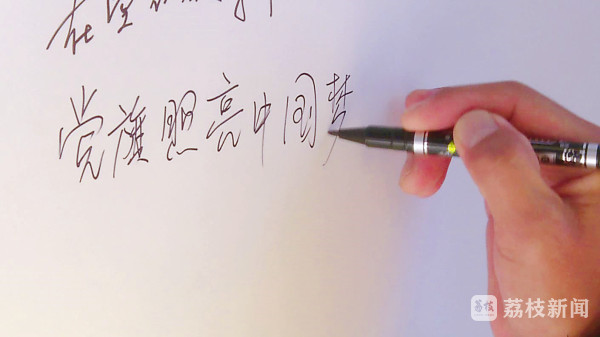 在坚
党旗照亮中国梦
荔枝 荔枝新闻